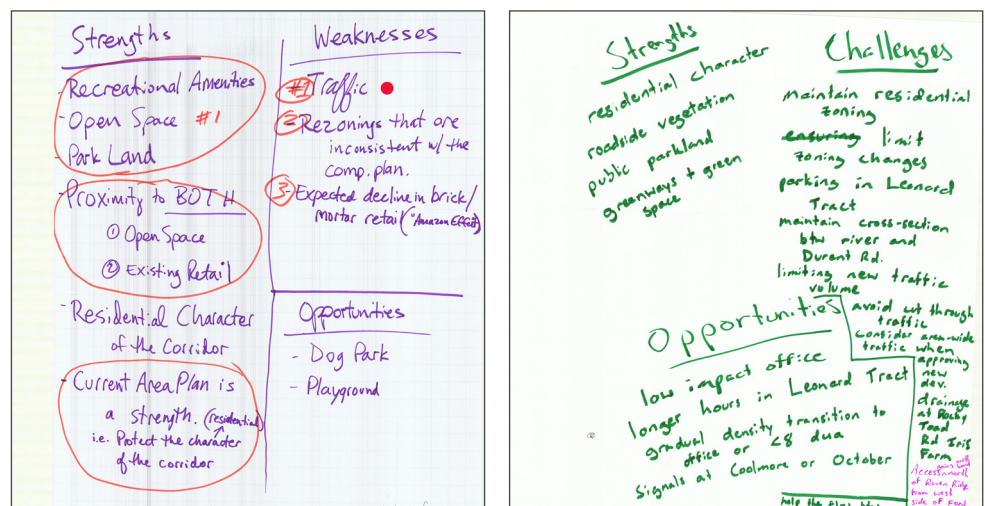 Strengths
- Recreational Amenities
- Open Space #1
- Park Land
- Proximity to BOTH
① Open Space
② Existing Retail
- Residential Character
of the Corridor
- Current Area Plan is
a strength. (residential)
i.e. Protect the character
of the corridor
Weaknesses
#1 Traffic
2 - Rezonings that are
inconsistent w/ the
comp. plan.
3 - Expected decline in brick/
mortar retail ("Amazon Effect")
Opportunities
- Dog Park
- Playground
Strengths
residential character
roadside vegetation
public parkland
greenways + green
space
Challenges
maintain residential
zoning
ensuring limit
zoning changes
parking in Leonard
Tract
maintain cross-section
btw river and
Durant Rd.
limiting new traffic
volume
avoid cut through
traffic
consider area-wide
traffic when
approving
new
dev.
drainage
at Rocky
Toad
Rd Iris
Farm
Access
north
of River Ridge
from west
side of
Opportunities
low impact office
longer hours in Leonard Tract
gradual density transition to
office or <8 dua
Signals at Coolmore or October
help the